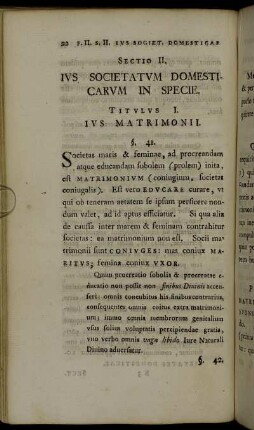 22 P. II. S. II. IVS SOCIET. DOMESTICAE
SECTIO II.
IVS SOCIETATVM DOMESTI-
CARVM IN SPECIE.
TITVLVS I.
IVS MATRIMONII.
§. 41.
Societas maris & feminae, ad procreandam
atque educandam subolem (prolem) inita,
est MATRIMONIVM (coniugium, societas
coniugalis). Est vero EDVCARE curare, vt
qui ob teneram aetatem se ipsum perficere non-
dum valet, ad id aptus efficiatur. Si qua alia
de caussa inter marem & feminam contrahitur
societas: ea matrimonium non est. Socii ma-
trimonii sunt CONIVGES: mas coniux MA-
RITVS; femina coniux VXOR.
Quum procreatio sobolis & procreatae e-
ducatio non possit non finibus Diuinis accen-
seri: omnis concubitus his finibus contrarius,
consequenter omnis coitus extra matrimoni-
um; immo omnis membrorum genitalium
vsus solius voluptatis percipiendae gratia,
vno verbo omnis vaga libido Iure Naturali
Diuino aduersatur.
§. 42.